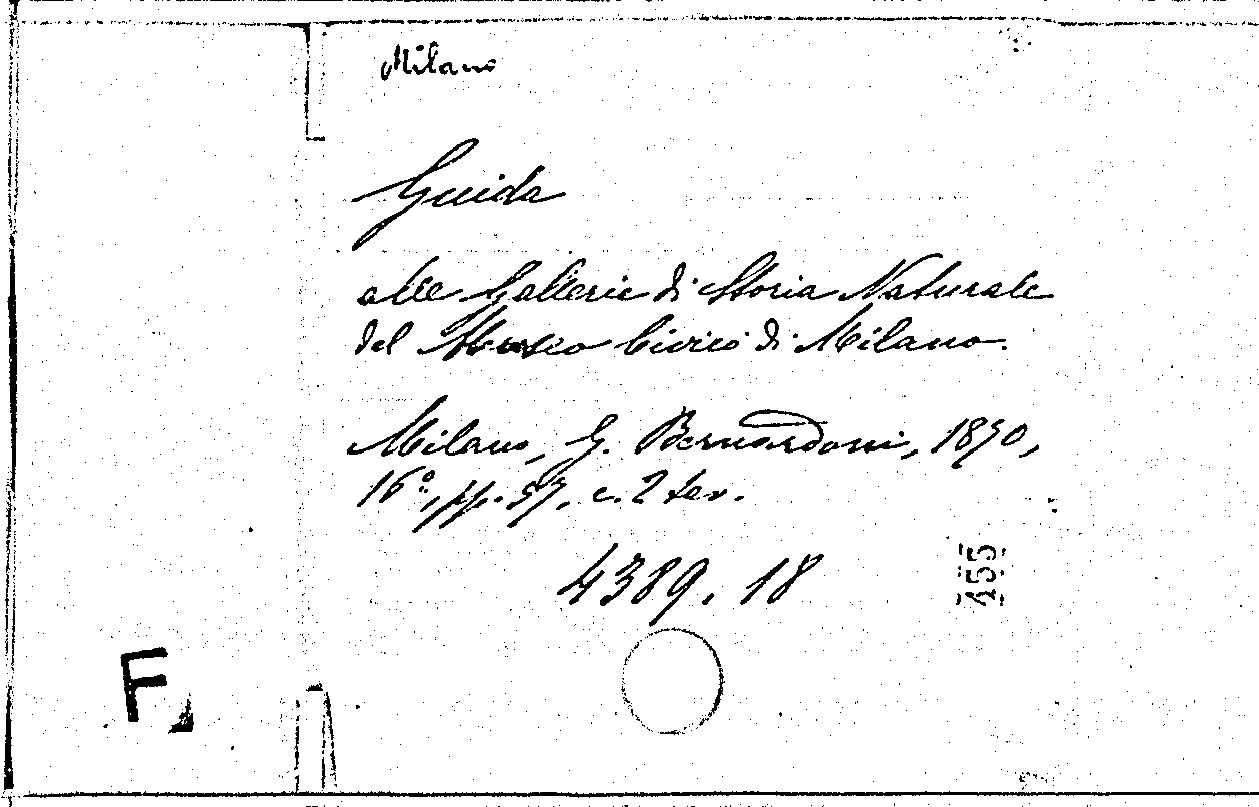 Milano
Guida
alle Gallerie di Storia Naturale
del Museo Civico di Milano.
Milano, G. Bernardoni, 1890,
16°, pp. 57, c. 2 tav.
4389. 18
455
F